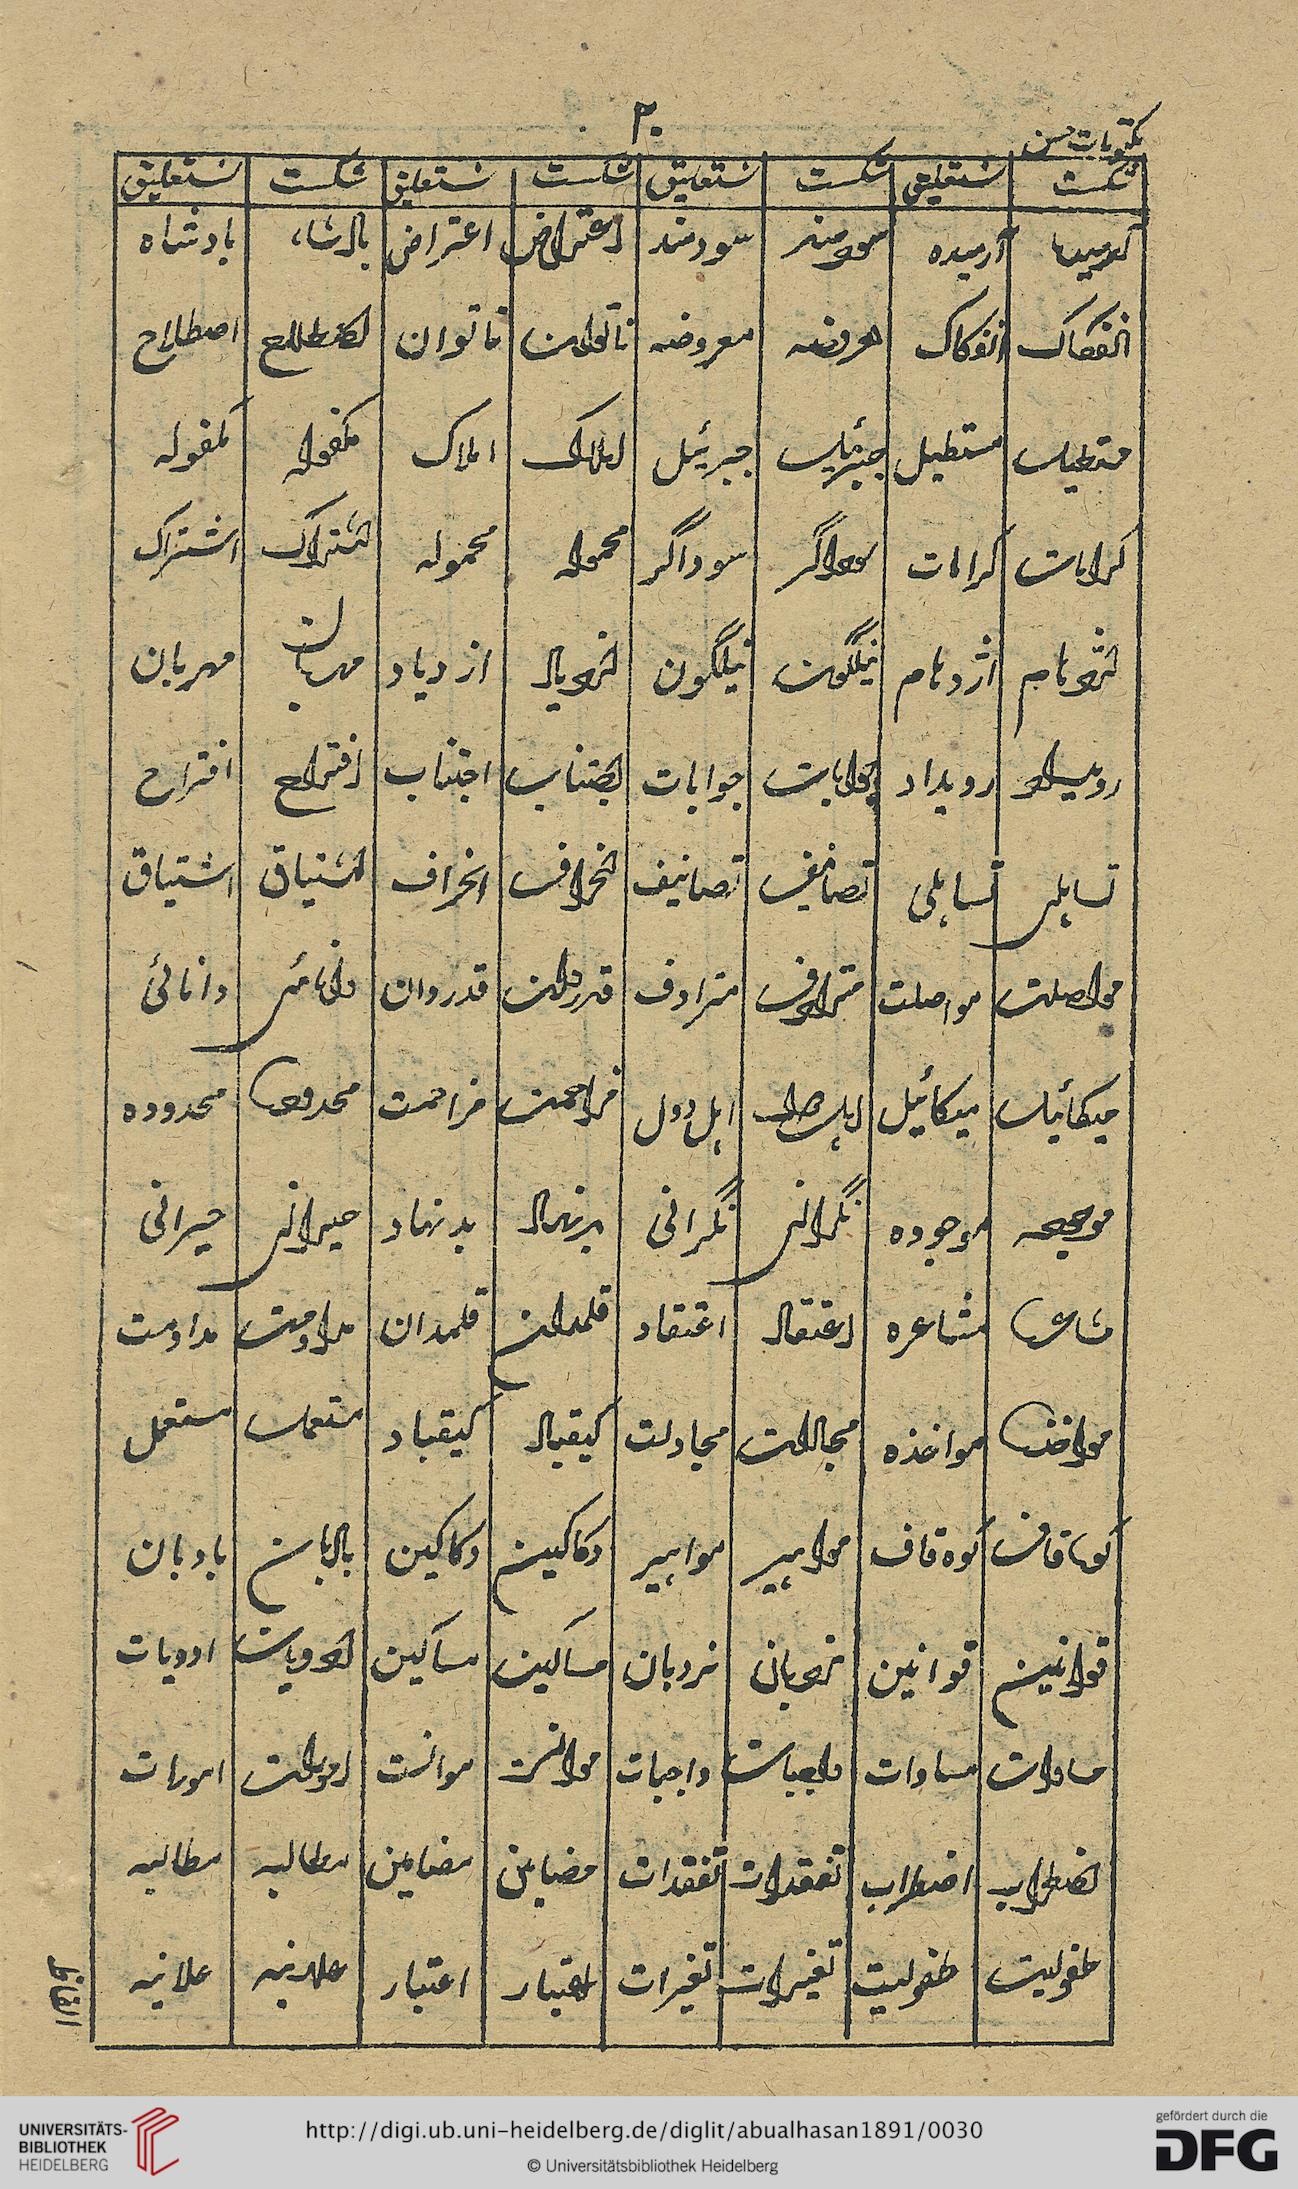 ۳۰
مکتوبات حسن
شکست نستعلیق شکست نستعلیق شکست نستعلیق شکست نستعلیق
آرمیده آرمیده سودمند سودمند اعتراض اعتراض بادشاه بادشاه
انفکاک انفکاک معروضه معروضه ناتوان ناتوان اصطلاح اصطلاح
مستطیل مستطیل جبرئیل جبرئیل املاک املاک مکفوله مکفوله
کرامات کرامات سوداگر سوداگر محموله محموله اشتراک اشتراک
اژدهام اژدهام نیلگون نیلگون ازدیاد ازدیاد مهربان مهربان
رویداد رویداد جوابات جوابات اجتناب اجتناب افتراح افتراح
تساہلی تساہلی تصانیف تصانیف انحراف انحراف اشتیاق اشتیاق
مواصلت مواصلت مترادف مترادف قدردان قدردان دانائی دانائی
میکائیل میکائیل اہل دول اہل دول مزاحمت مزاحمت محدوده محدوده
موجوده موجوده نگرانی نگرانی بدنهاد بدنهاد حیرانی حیرانی
مشاعره مشاعره اعتقاد اعتقاد قلمدان قلمدان مداومت مداومت
مواخذه مواخذه مجادلت مجادلت کیقباد کیقباد مستعمل مستعمل
کوه قاف کوه قاف مواہیر مواہیر دکاکین دکاکین بادبان بادبان
قوانین قوانین نردبان نردبان مساکین مساکین ادویات ادویات
مساوات مساوات واجبات واجبات موانست موانست امورات امورات
اضطراب اضطراب تفقدات تفقدات مضامین مضامین مطالبه مطالبه
طفولیت طفولیت تغیرات تغیرات اعتبار اعتبار علانیه علانیه
الفاظ
UNIVERSITÄTS-
BIBLIOTHEK
HEIDELBERG
http://digi.ub.uni-heidelberg.de/diglit/abualhasan1891/0030
© Universitätsbibliothek Heidelberg
gefördert durch die
DFG